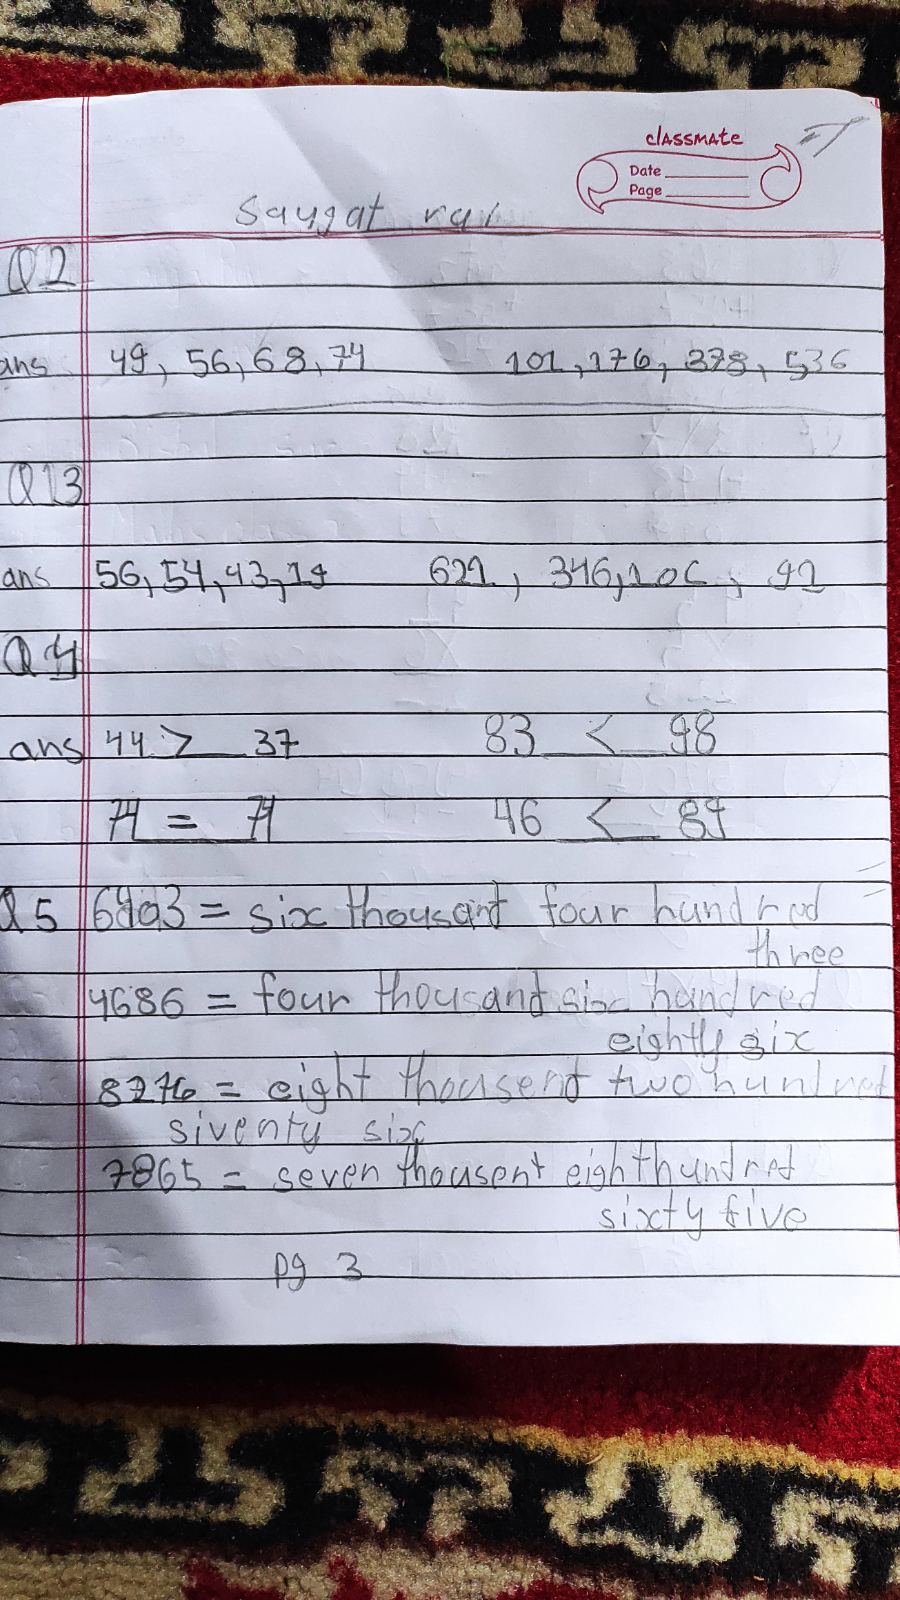 classmate
Date
Page
Saugat rai
Q2
ans 49, 56, 68, 74 101, 176, 378, 536
Q13
ans 56, 54, 43, 19 621, 346, 106, 92
Q4
ans 44 > 37 83 < 98
74 = 74 46 < 89
Q5 6403 = six thousant four hundred
three
4686 = four thousand six hundred
eighty six
8276 = eight thousend two hundred
siventy six
7865 = seven thousent eight hundred
sixty five
pg 3